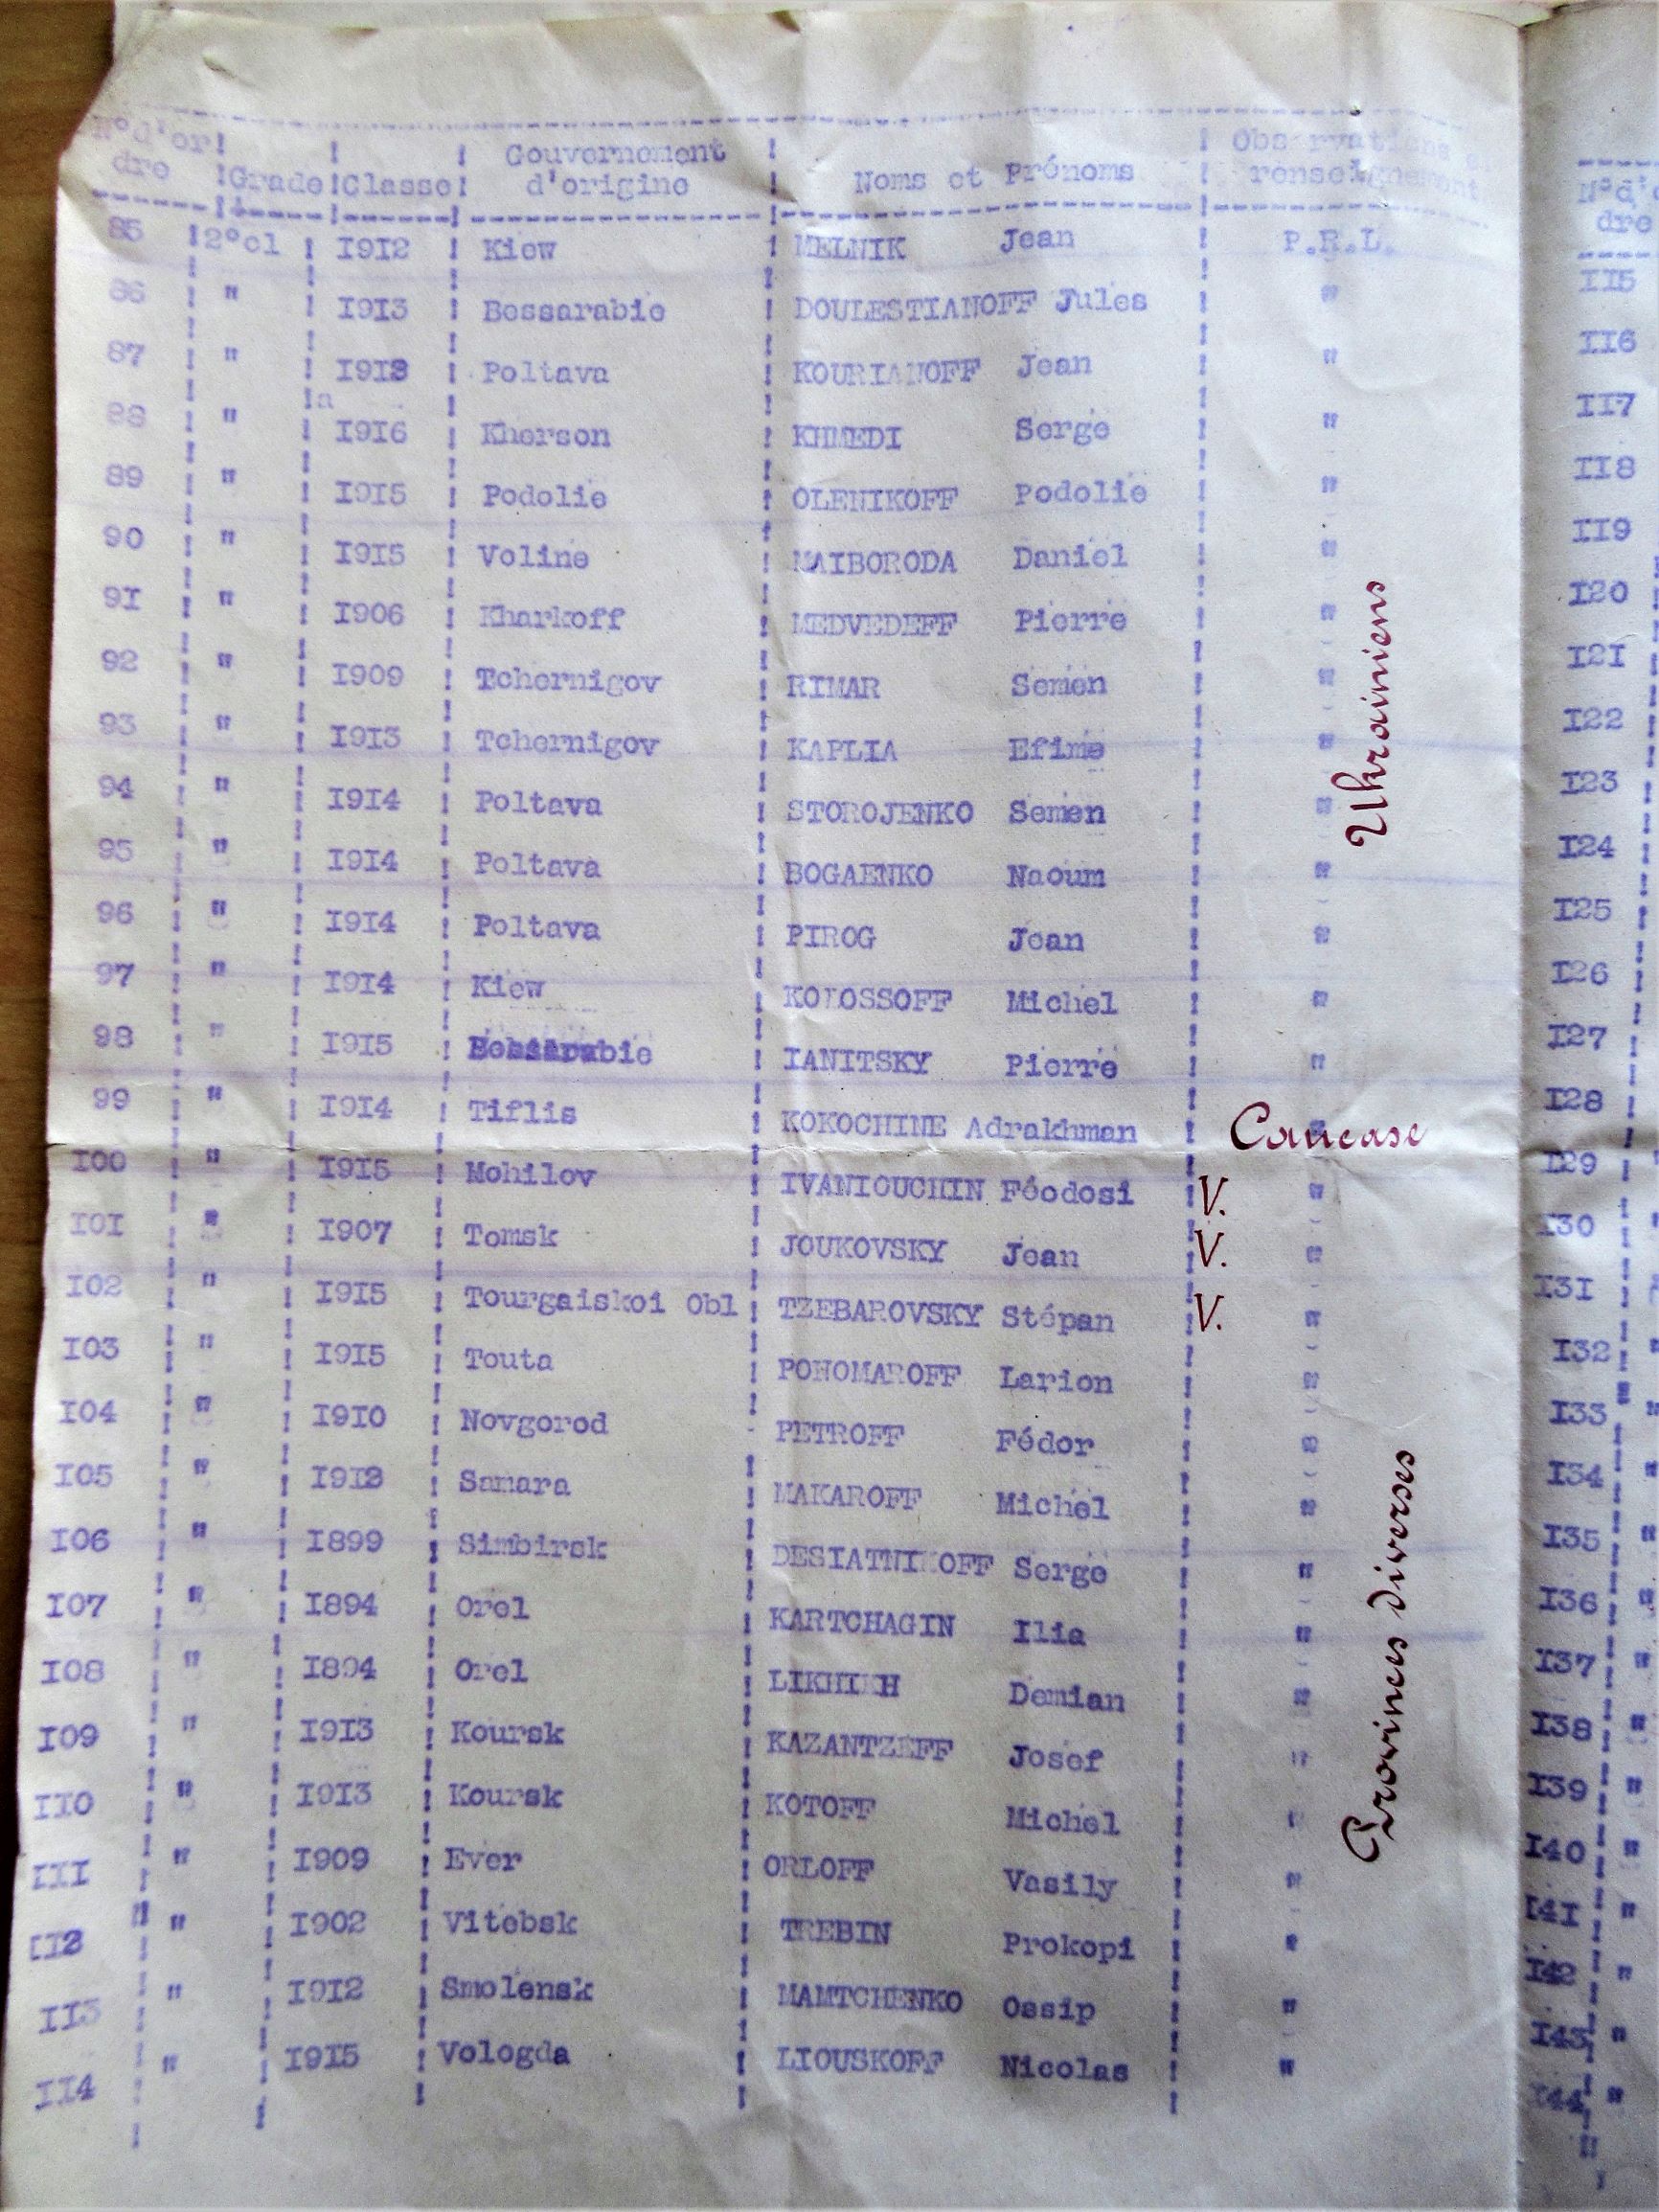 N°d'or Gouvernement Observations
dre Grade Classe d'origine Noms et Prénoms renseignement
85 2°cl I9I2 Kiew MELNIK Jean P.R.L.
86 " I9I3 Bessarabie DOULESTIANOFF Jules "
87 " Poltava KOURIANOFF Jean "
88 " a I9I6 Kherson KHMEDI Serge "
89 " I9I5 Podolie OLENIKOFF Podolie "
90 " I9I5 Voline MAIBORODA Daniel "
9I " I906 Kharkoff MEDVEDEFF Pierre "
92 " I909 Tchernigov RIMAR Semen "
93 " I9I3 Tchernigov KAPLIA Efime "
94 " I9I4 Poltava STOROJENKO Semen "
95 " I9I4 Poltava BOGAENKO Naoum "
96 " I9I4 Poltava PIROG Jean "
97 " I9I4 Kiew Michel "
98 " I9I5 Bessarabie IANITSKY Pierre "
Ukrainiens
99 " I9I4 Tiflis KOKOCHINE Adrakhman " Caucase
I00 " I9I5 Mohilov IVANIOUCHIN Féodosi V. "
I0I " I907 Tomsk JOUKOVSKY Jean V. "
I02 " I9I5 Tourgaiskoi Obl TZEBAROVSKY Stépan V. "
I03 " I9I5 Touta Larion "
I04 " I9I0 Novgorod PETROFF Fédor "
I05 " Samara MAKAROFF Michel "
I06 " I899 Simbirsk DESIATNIKOFF Serge "
I07 " I894 Orel KARTCHAGIN Ilia "
I08 " I894 Orel Demian "
I09 " I9I3 Koursk KAZANTZEFF Josef "
II0 " I9I3 Koursk KOTOFF Michel "
III " I909 Ever ORLOFF Vasily "
II2 " I902 Vitebsk TREBIN Prokopi "
II3 " I9I2 Smolensk MAMTCHENKO Ossip "
II4 " I9I5 Vologda LIOUSKOFF Nicolas "
Provinces diverses
N°d'o
dre
II5
II6
II7
II8
II9
I20
I2I
I22
I23
I24
I25
I26
I27
I28
I29
I30
I3I
I32
I33 "
I34 "
I35 "
I36 "
I37 "
I38 "
I39 "
I40 "
I4I "
I42 "
I43 "
I44 "